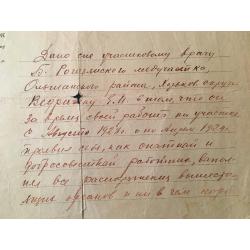 Дано сие участковому врачу
Б. Рогозянского медучастка,
Ольшанского района, Харьков. округа
в том, что он
за время своей работы на участке
с Августа 1927 г. по Апрель 192
проявил себя, как опытный и
добросовестный работник, выпол-
нял все распоряжения вышесто-
ящих органов и ни в чем